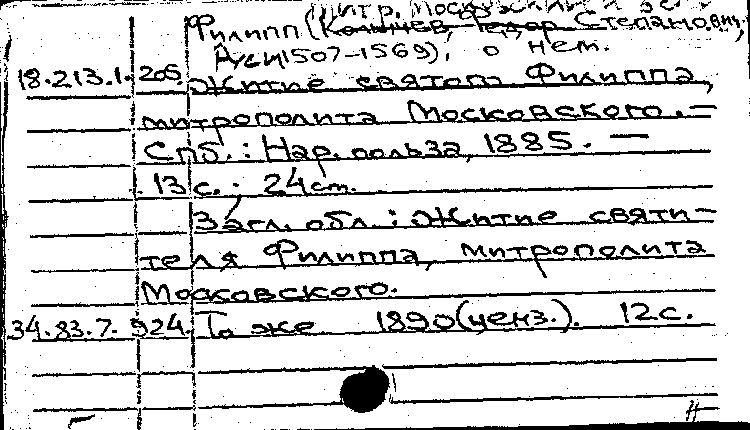 митр. Московский и всея
Филипп (Колычев, Федор Степанович,
Руси 1507-1569), о нем.
18.213.1.205. Житие святого Филиппа,
митрополита Московского. —
Спб.: Нар. польза, 1885. —
13 с.; 24 см.
Загл. обл.: Житие святи-
теля Филиппа, митрополита
Московского.
34.83.7.924. То же 1890 (ценз.). 12 с.